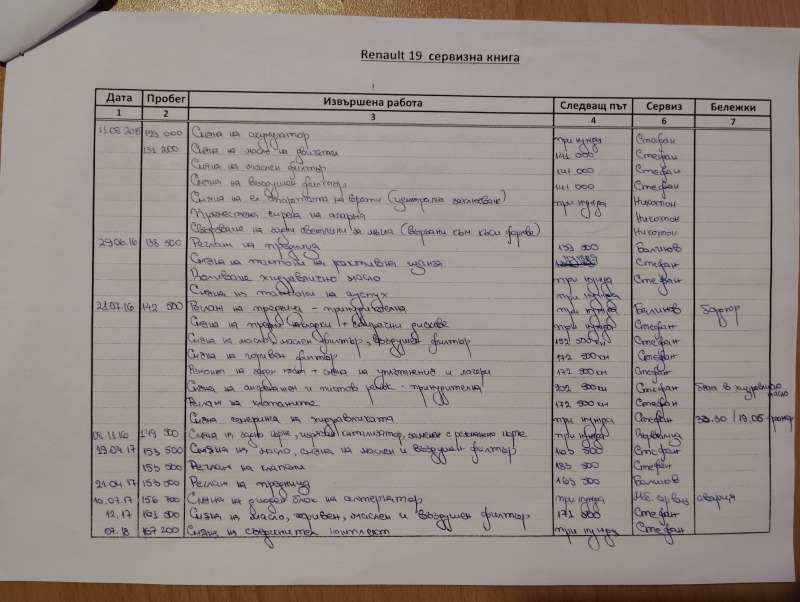 Renault 19 сервизна книга
Дата Пробег Извършена работа Следващ път Сервиз Бележки
1 2 3 4 6 7
129 000 Смяна на акумулатор при нужда Стефан
131 200 Смяна на масло на двигател 141 000 Стефан
Смяна на маслен филтър 141 000 Стефан
Смяна на въздушен филтър 141 000 Стефан
Смяна на ел. на врати (централно заключване) при нужда Никотон
Преместена сирена на аларма Никотон
Свързване на задни светлини за мъгла (вързани към къси фарове) Никотон
29.06.16 138 500 Реглаж на предница 153 500 Балинов
Смяна на тампони на реактивна щанга нужда Стефан
Доливане хидравлично масло при нужда Стефан
Смяна на тампони на ауспух при нужда
21.07.16 142 500 Реглаж на предница - принудителна при нужда Балинов бордюр
Смяна на предни накладки + спирачни дискове при нужда Стефан
Смяна на масло, маслен филтър, въздушен филтър 152 500км Стефан
Смяна на горивен филтър 172 500км Стефан
Ремонт на заден мост + смяна на уплътнения и лагери 172 500км Стефан
Смяна на ангренажен и пистов ремък - принудителна 202 500км Стефан бета в хидравлично масло
Реглаж на клапаните 172 500км Стефан
Смяна семеринга на хидравликата при нужда Стефан 38.30 / 19.05 -
08.11.16 149 500 Смяна на задно гърне, изрязан катализатор, заменен с резонансно гърне при нужда
19.04.17 155 500 Смяна на масло, смяна на маслен и въздушен филтър 165 500 Стефан
155 500 Реглаж на клапани 185 500 Стефан
21.04.17 155 500 Реглаж на предница 165 500 Балинов
10.07.17 156 700 Смяна на диоден блок на алтернатор при нужда сервиз авария
12.17 161 500 Смяна на масло, горивен, маслен и въздушен филтър 171 500 Стефан
07.18 167 200 Смяна на съединител комплект при нужда Стефан